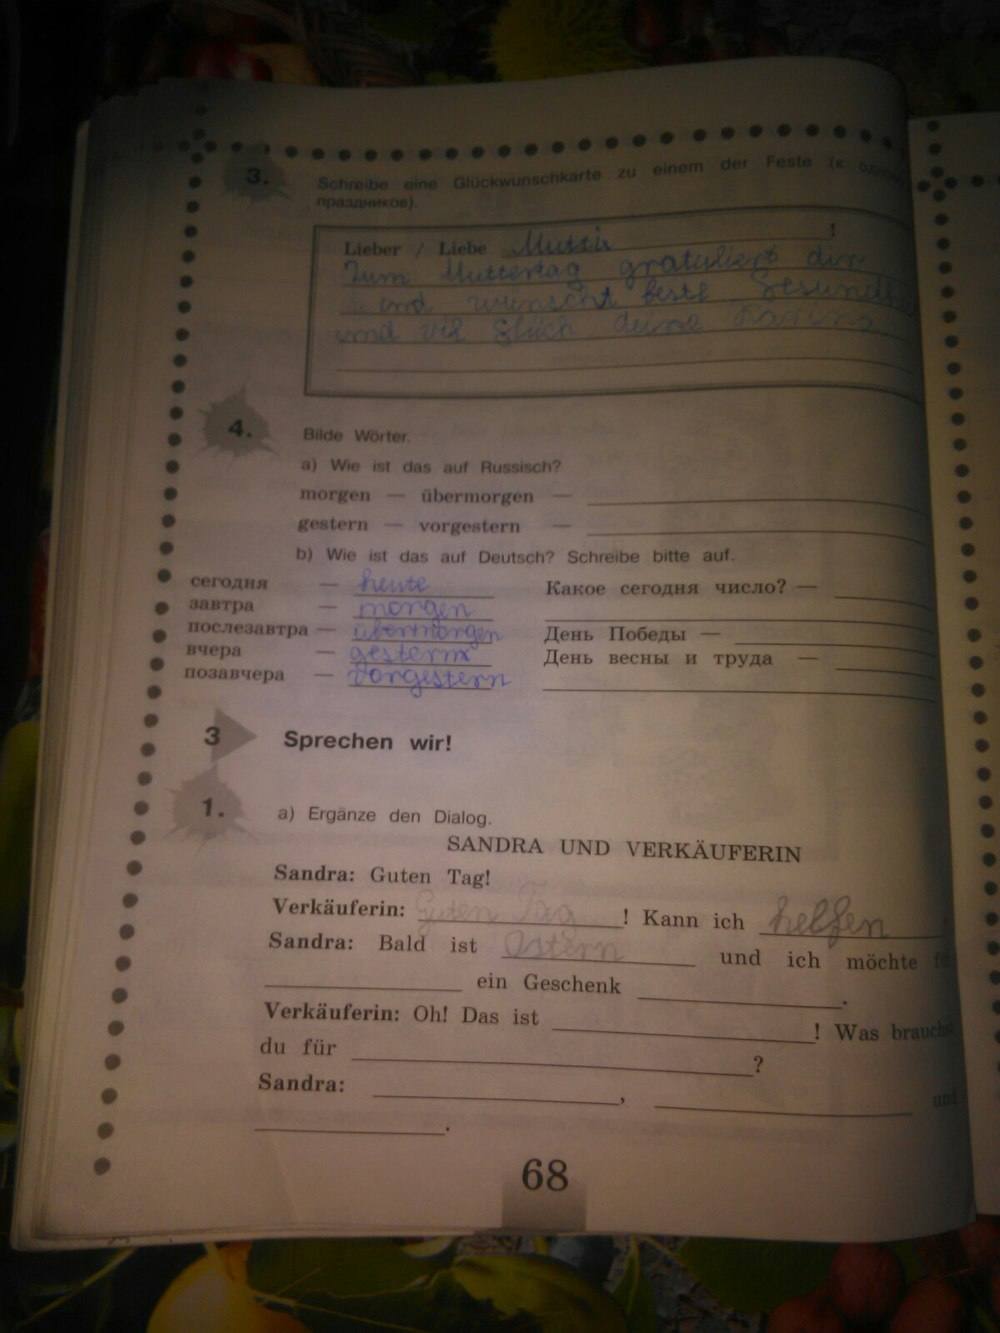 3.
Schreibe eine Glückwunschkarte zu einem der Feste (к
праздников).
Lieber / Liebe Mutti !
Zum Muttertag gratuliert dir
und wünscht beste
und vil Glück deine
4.
Bilde Wörter.
a) Wie ist das auf Russisch?
morgen — übermorgen —
gestern — vorgestern —
b) Wie ist das auf Deutsch? Schreibe bitte auf.
сегодня — heute Какое сегодня число? —
завтра — morgen
послезавтра — übermorgen День Победы —
вчера — gestern День весны и труда —
позавчера — vorgestern
3 Sprechen wir!
1.
a) Ergänze den Dialog.
SANDRA UND VERKÄUFERIN
Sandra: Guten Tag!
Verkäuferin: Guten Tag ! Kann ich helfen
Sandra: Bald ist Ostern und ich möchte
ein Geschenk .
Verkäuferin: Oh! Das ist ! Was brauchst
du für ?
Sandra: , und
.
68